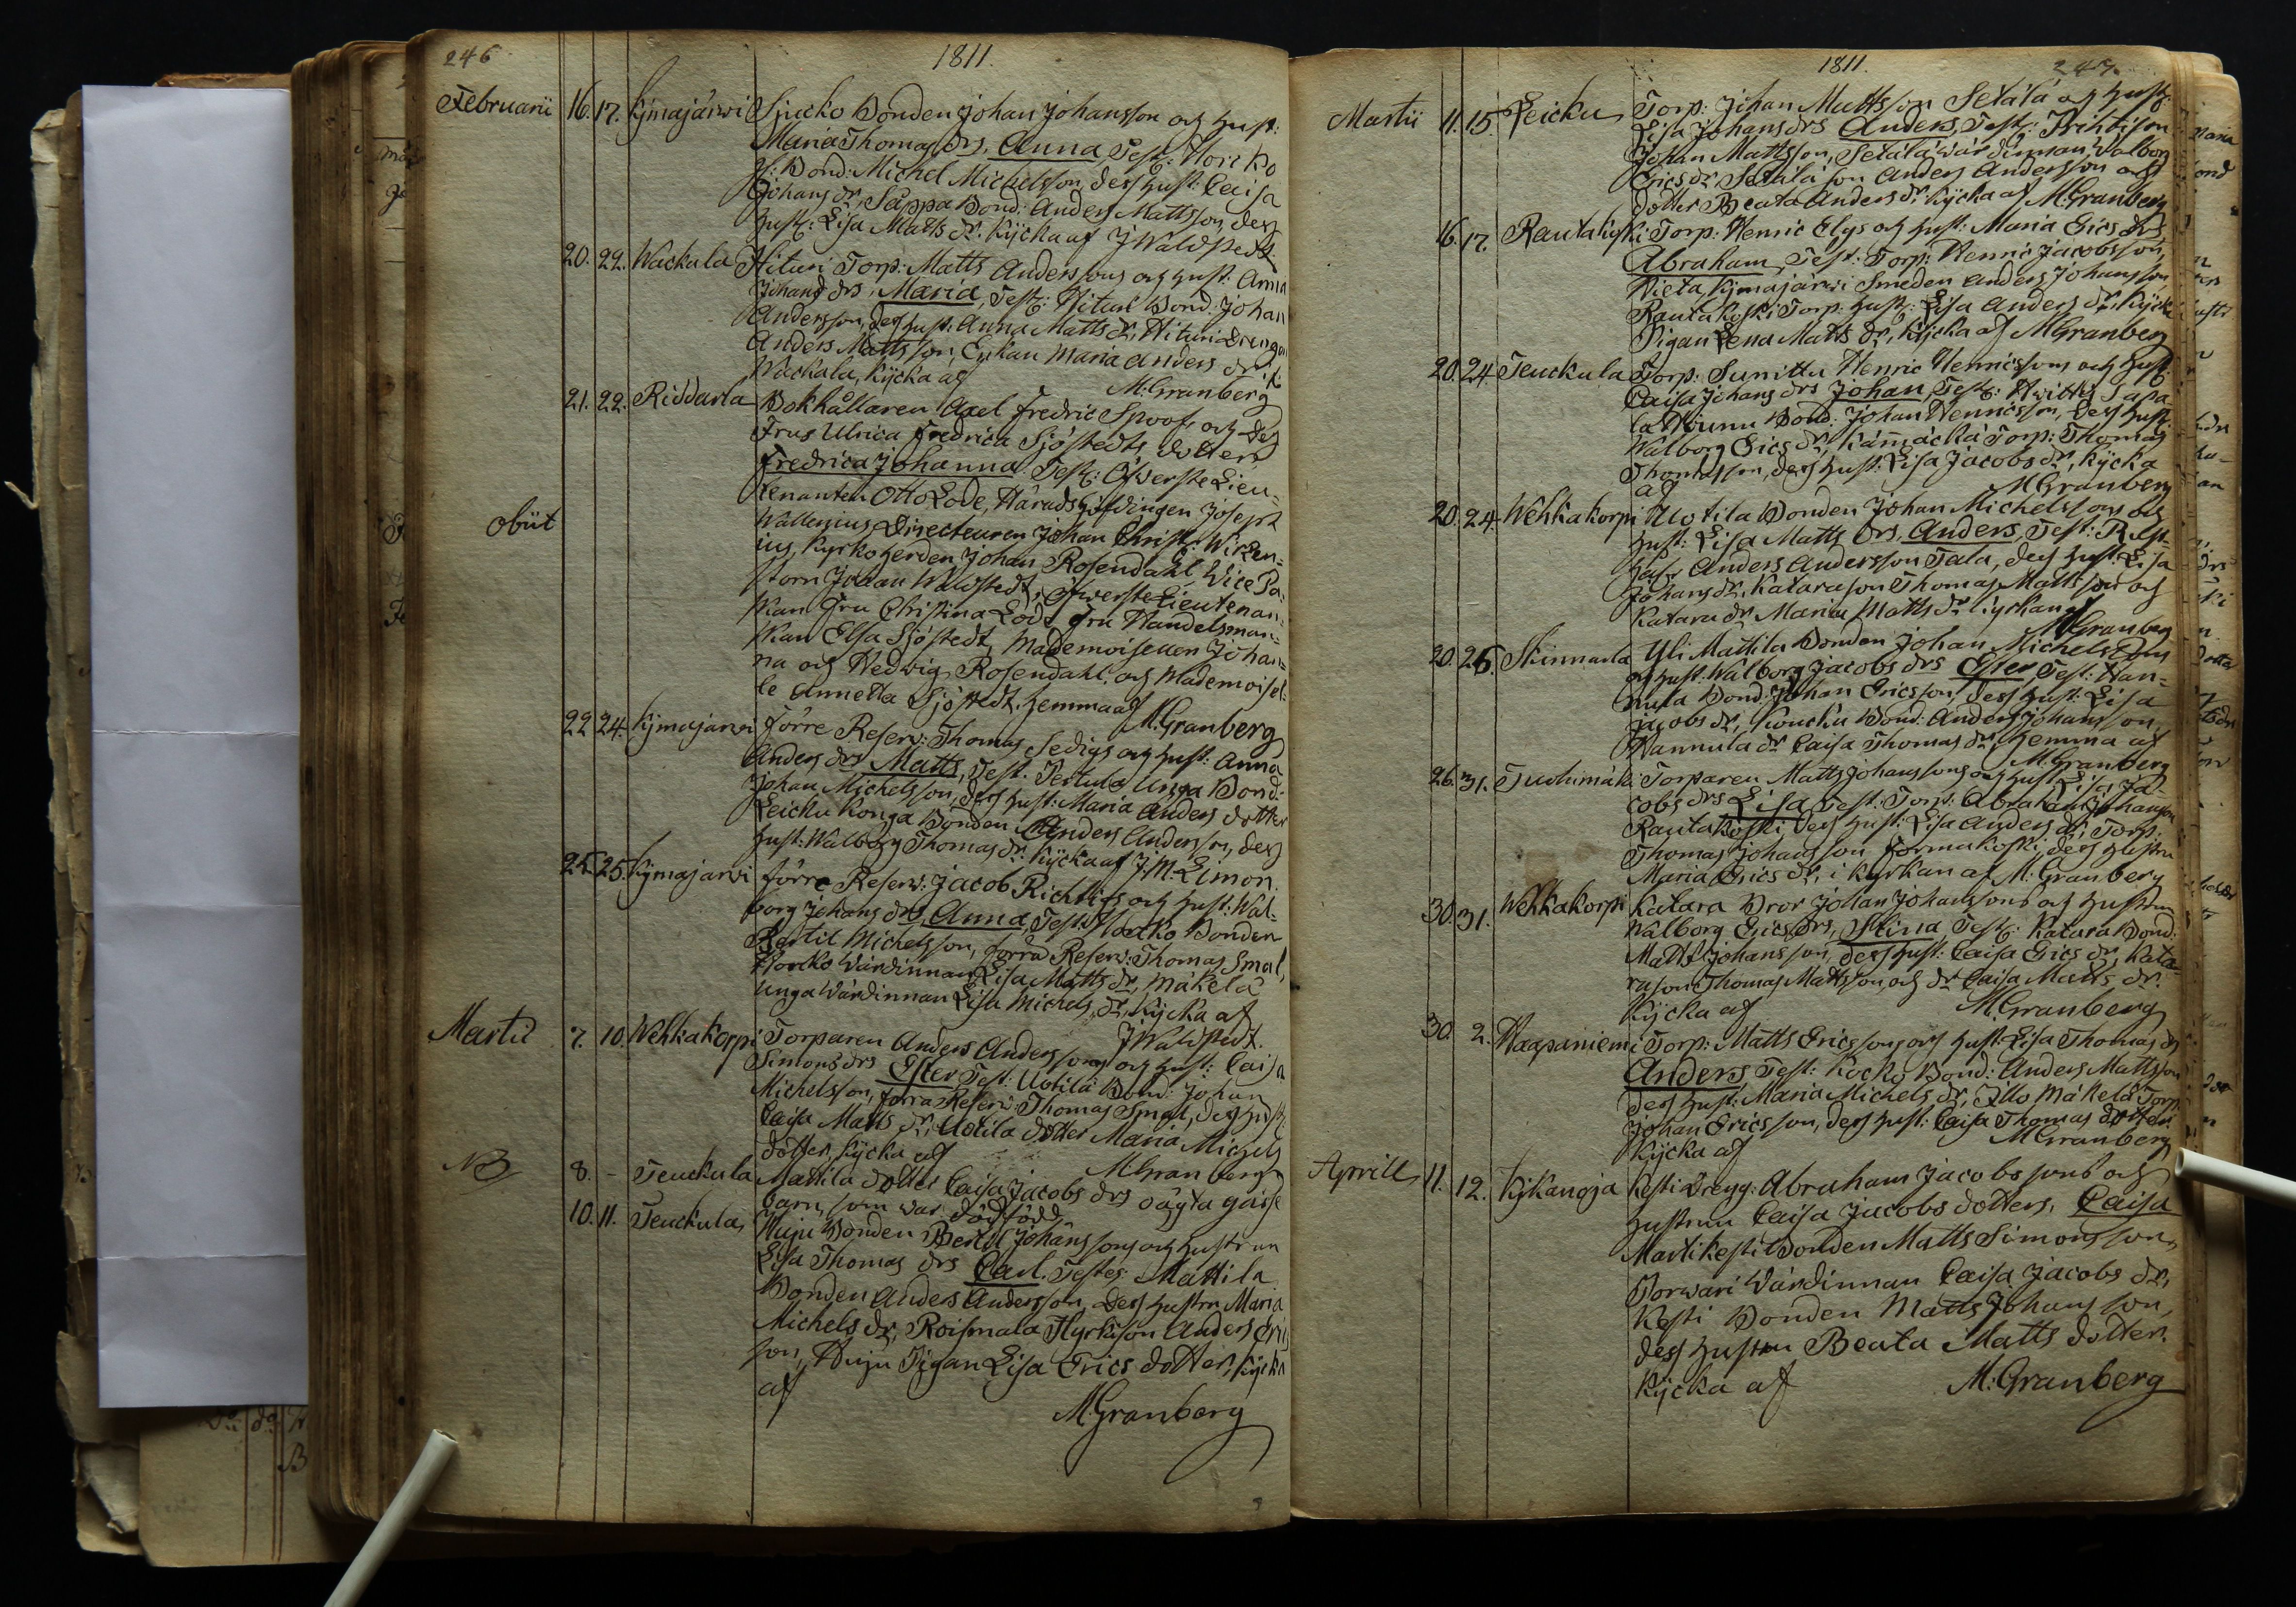 246 1811.
Februarii 16. 17. Kjmajärwi Sjucko Bonden Johan Johansson och hust:
Maria Thomas drs. Anna, Test:
gs: Bond: Michel Michelsson, dess hust: Caisa
Johans dr, Säppä Bond: Anders Mattsson, dess
hust: Lisa Matts dr. Kijcka af J Waldstedt.
20. 22. Wackala Hituri Torp: Matts Anderssons och hust: Anna
Johans drs, Maria, Test: Hituri Bond: Johan
Andersson, dess hust: Anna Matts dr, Hituri drengen
Anders Mattsson, Enkan Maria Anders dr
Wackala, Kijcka af M:Granberg
21. 22. Riddarla Bokhållaren Axel Fredric Spoofs och dess
Frus Ulrica Fredrica Sjöstedts dotter
Fredrica Johanna Test: Öfwerste Lieu-
obiit tenanten Otto Lode, Häradshöfdingen Joseph
Wallenius, Directeuren Johan Christ: Wiren-
ius, Kyrkoherden Johan Rosendahl, Vice Pa-
storn Johan Waldstedt, Öfwerste Lieutenan-
skan Fru Christina Lode, Fru Handelsman-
skan Elsa Sjöstedt, Mademoisellen Johan-
na och Hedwig Rosendahl, och Mademoisel-
le Annetta Sjöstedt. hemma af
M:Granberg
22 24. Kjmajärwi förre Reserv: Thomas Sedigs och hust: Anna
Anders drs Matts, Test: Tertula Unga Bond:
Johan Michelsson, dess hust: Maria Anders dotter
Leicku Konga Bonden Anders Andersson, dess
hust: Walborg Thomas dr. Kijcka af J:M: Limon.
25. 25. Kjmajarwi förre Reserv: Jacob Richtigs och hust: Wal-
borg Johans drs, Anna, Test: Bonden
Bertil Michelsson, förra Reserv: Thomas Smal,
Wärdinnan Lisa Matts dr, Mäkelä
unga Wärdinnan Lisa Michels dr, Kijcka af
J Waldstedt.
Martii 7. 10. Wehkakorpi Torparen Anders Anderssons och hust: Caisa
Simons drs Ester Test: Uotila Bond: Johan
Michelsson, förra Reserv: Thomas Smal, dess hust:
Caisa Matts dr, Uotila dotter Maria Michels
dotter, Kijcka af M:Granberg
NB 8. - Teuckula Mattila dotter Caisa Jacobs drs oägta
barn, som war dödfödd
10. 11. Teuckula, Huju Bonden Bertil Johanssons och hustrun
Lisa Thomas drs Carl. Testes Mattila
Bonden Anders Andersson, dess hustru Maria
Michels dr, Roismala Hyrkison Anders Erics
son, Huju Pigan Lisa Erics dotter, Kijcka
af
M:Granberg
1811. 247.
Martii 11. 15. Leicku Torp: Johan Mattsson Setälä och hust:
Lisa Johans drs Anders, Test:
Johan Mattsson, Setälä wärdinnan Walborg
Erics dr, Setälä son Anders Andersson och
dotter Beata Anders dr. Kijcka af M:Granberg
16. 17. Rautakoski Torp: Henric Elgs och hust: Maria Erics drs
Abraham, Test: Torp: Henric Jacobsson,
Kjmajärwi Smeden Anders Johansson
Rautakoski Torp: hust: Lisa Anders dr, Kijcka
Pigan Lena Matts dr, Kijcka af M:Granberg
20. 24 Teuckula Torp: Sunittu Henric Henricssons och hust:
Caisa Johans drs Johan, Test:
Bond: Johan Henricsson, dess hust:
Walborg Erics dr, Torp: Thomas
Thomasson, dess hust: Lisa Jacobs dr, Kijcka
af M:Granberg
20. 24. Wehkakorpi Uotila Bonden Johan Michelssons och
hust: Lisa Matts drs, Anders, Test:
Anders Andersson Tala, dess hust: Lisa
Johans dr, Katara son Thomas Mattsson och
Katara dr. Maria Matts dr Kijrkan af
M:Granberg
20. 26. Skinnarla Yli Mattila Bonden Johan Michelssons
och hust: Walborg Jacobs drs Ester Test: Han-
nula Bond: Johan Ericsson, dess hust: Lisa
Jacobs dr, Koucku Bond: Anders Johansson,
Hannula dr Caisa Thomas dr, hemma af
M:Granberg
26. 31. Tuohimäki Torparen Matts Johanssons och hust: Lisa Ja-
cobs drs Lisa, Test: Torp: Abraham Johansson
Rautakoski, dess hust: Lisa Anders dr, Torp:
Thomas Johansson Formakoski, dess hustru
Maria Erics dr, i Kyrkan af M:Granberg
30. 31. Wehkakorpi Katara Bror Johan Johanssons och hustrun
Walborg Erics drs, Stina, Test: Katara Bond:
Matts Johansson, dess hust: Caisa Erics dr, Kata-
ra son Thomas Mattsson, och dr Caisa Matts dr.
Kijcka af M:Granberg
30. 2. Haapaniemi Torp: Matts Ericssons och hust: Lisa Thomas drs
Anders Test: Kocko Bond: Anders Mattsson
dess hust: Maria Michels dr, Illo Mäkelä Torp:
Johan Ericsson, dess hust: Caisa Thomas dotter
Kijcka af M:Granberg
Aprill 11. 12. Kijkanoja Kesti Dreng: Abraham Jacobssons och
hustrun Caisa Jacobs dotters, Caisa
Martikesti Bonden Matts Simonsson,
Torwari Wärdinnan Caisa Jacobs dr,
Kesti Bonden Matts Johansson,
dess hustru Beata Matts dotter.
Kijcka af M:Granberg